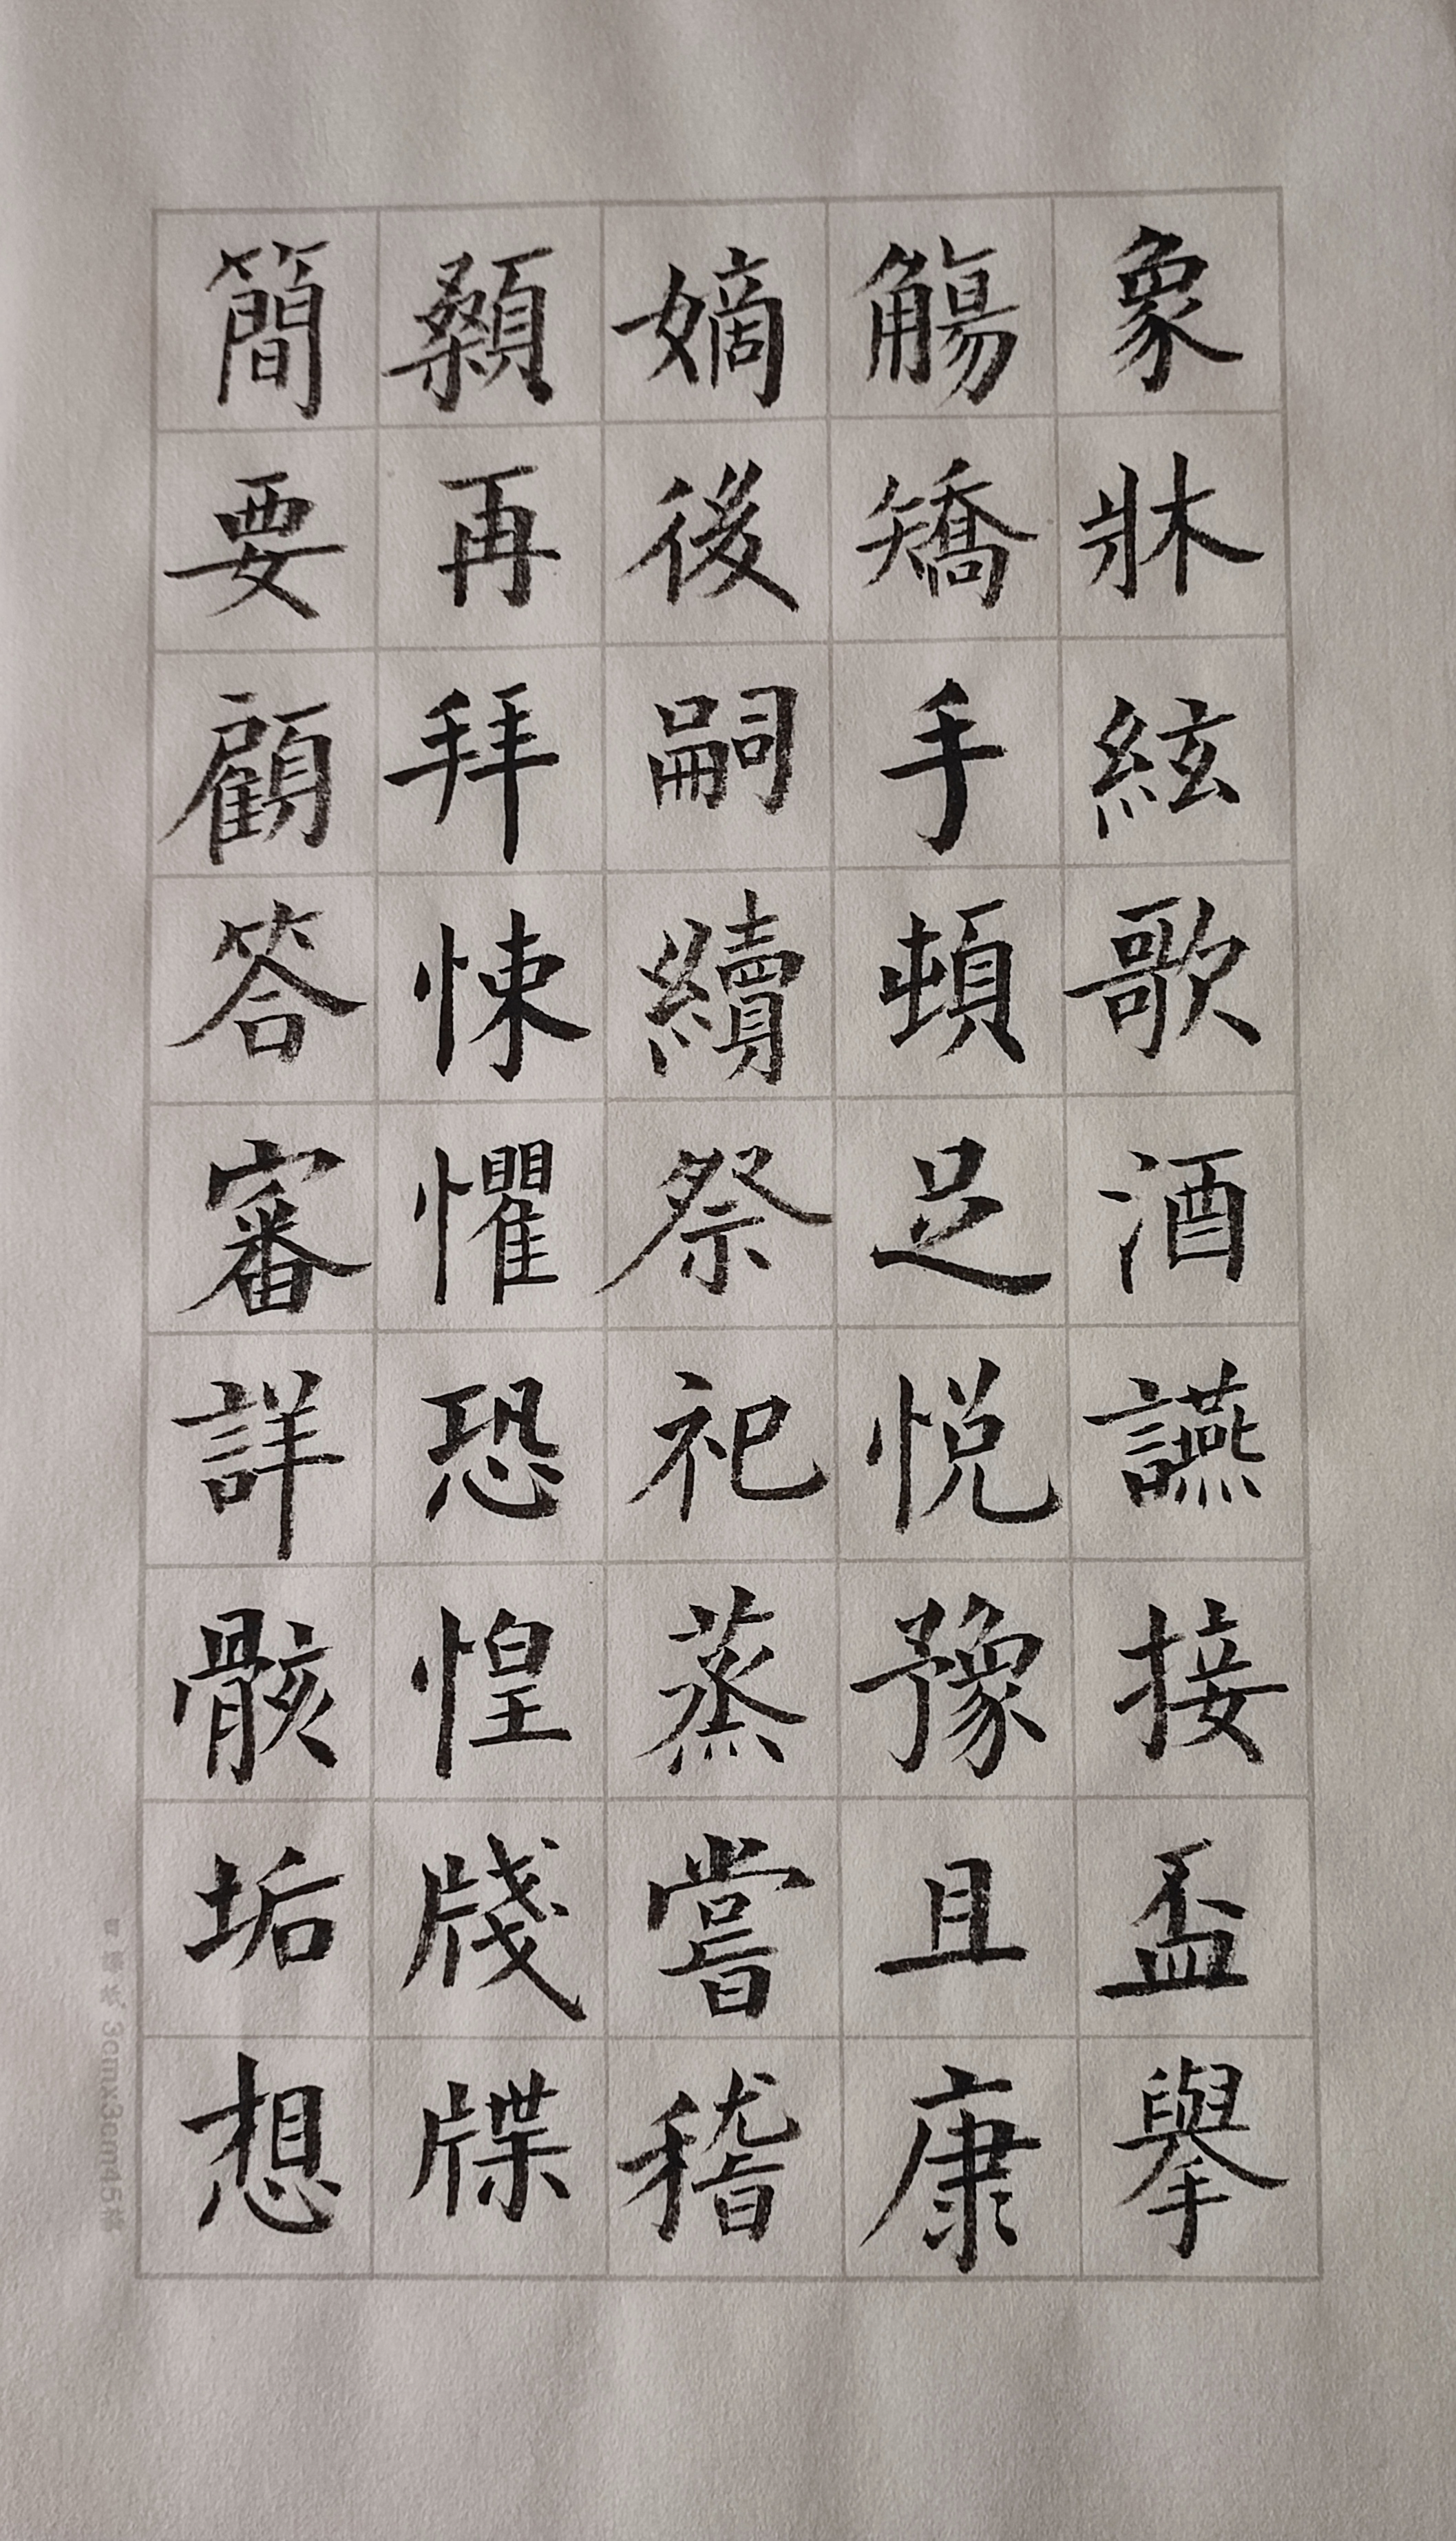 象牀絃歌酒讌接盃舉
觴矯手頓足悅豫且康
嫡後嗣續祭祀蒸嘗稽
顙再拜悚懼恐惶牋牒
簡要顧答審詳骸垢想